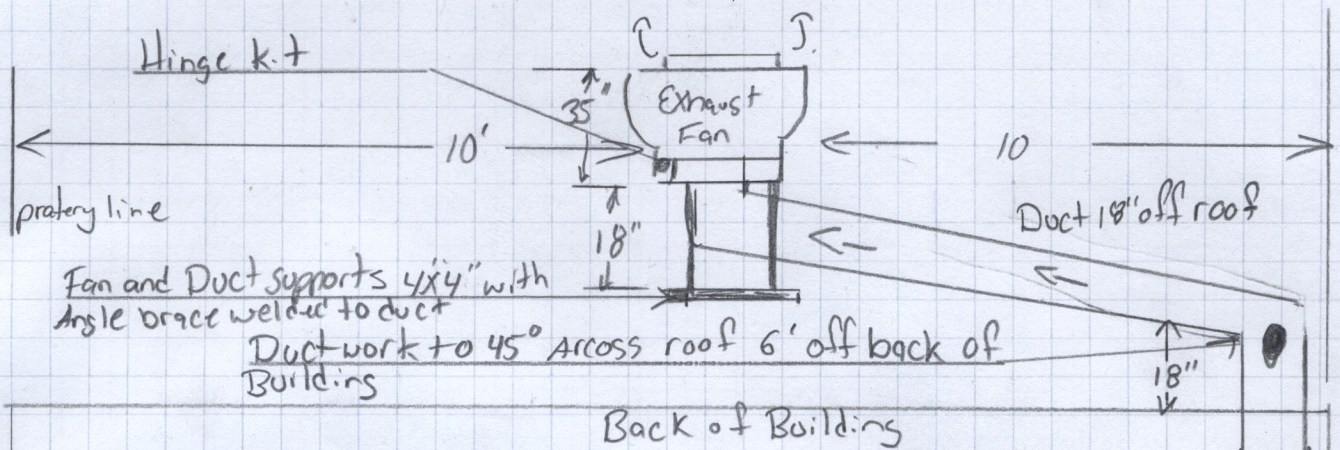 Hinge kit
35"
Exhaust
Fan
10'
10
pratery line
18"
Duct 18" off roof
Fan and Duct supports 4x4" with
Angle brace welded to duct
Ductwork to 45° Arcoss roof 6' off back of
Building
18"
Back of Building